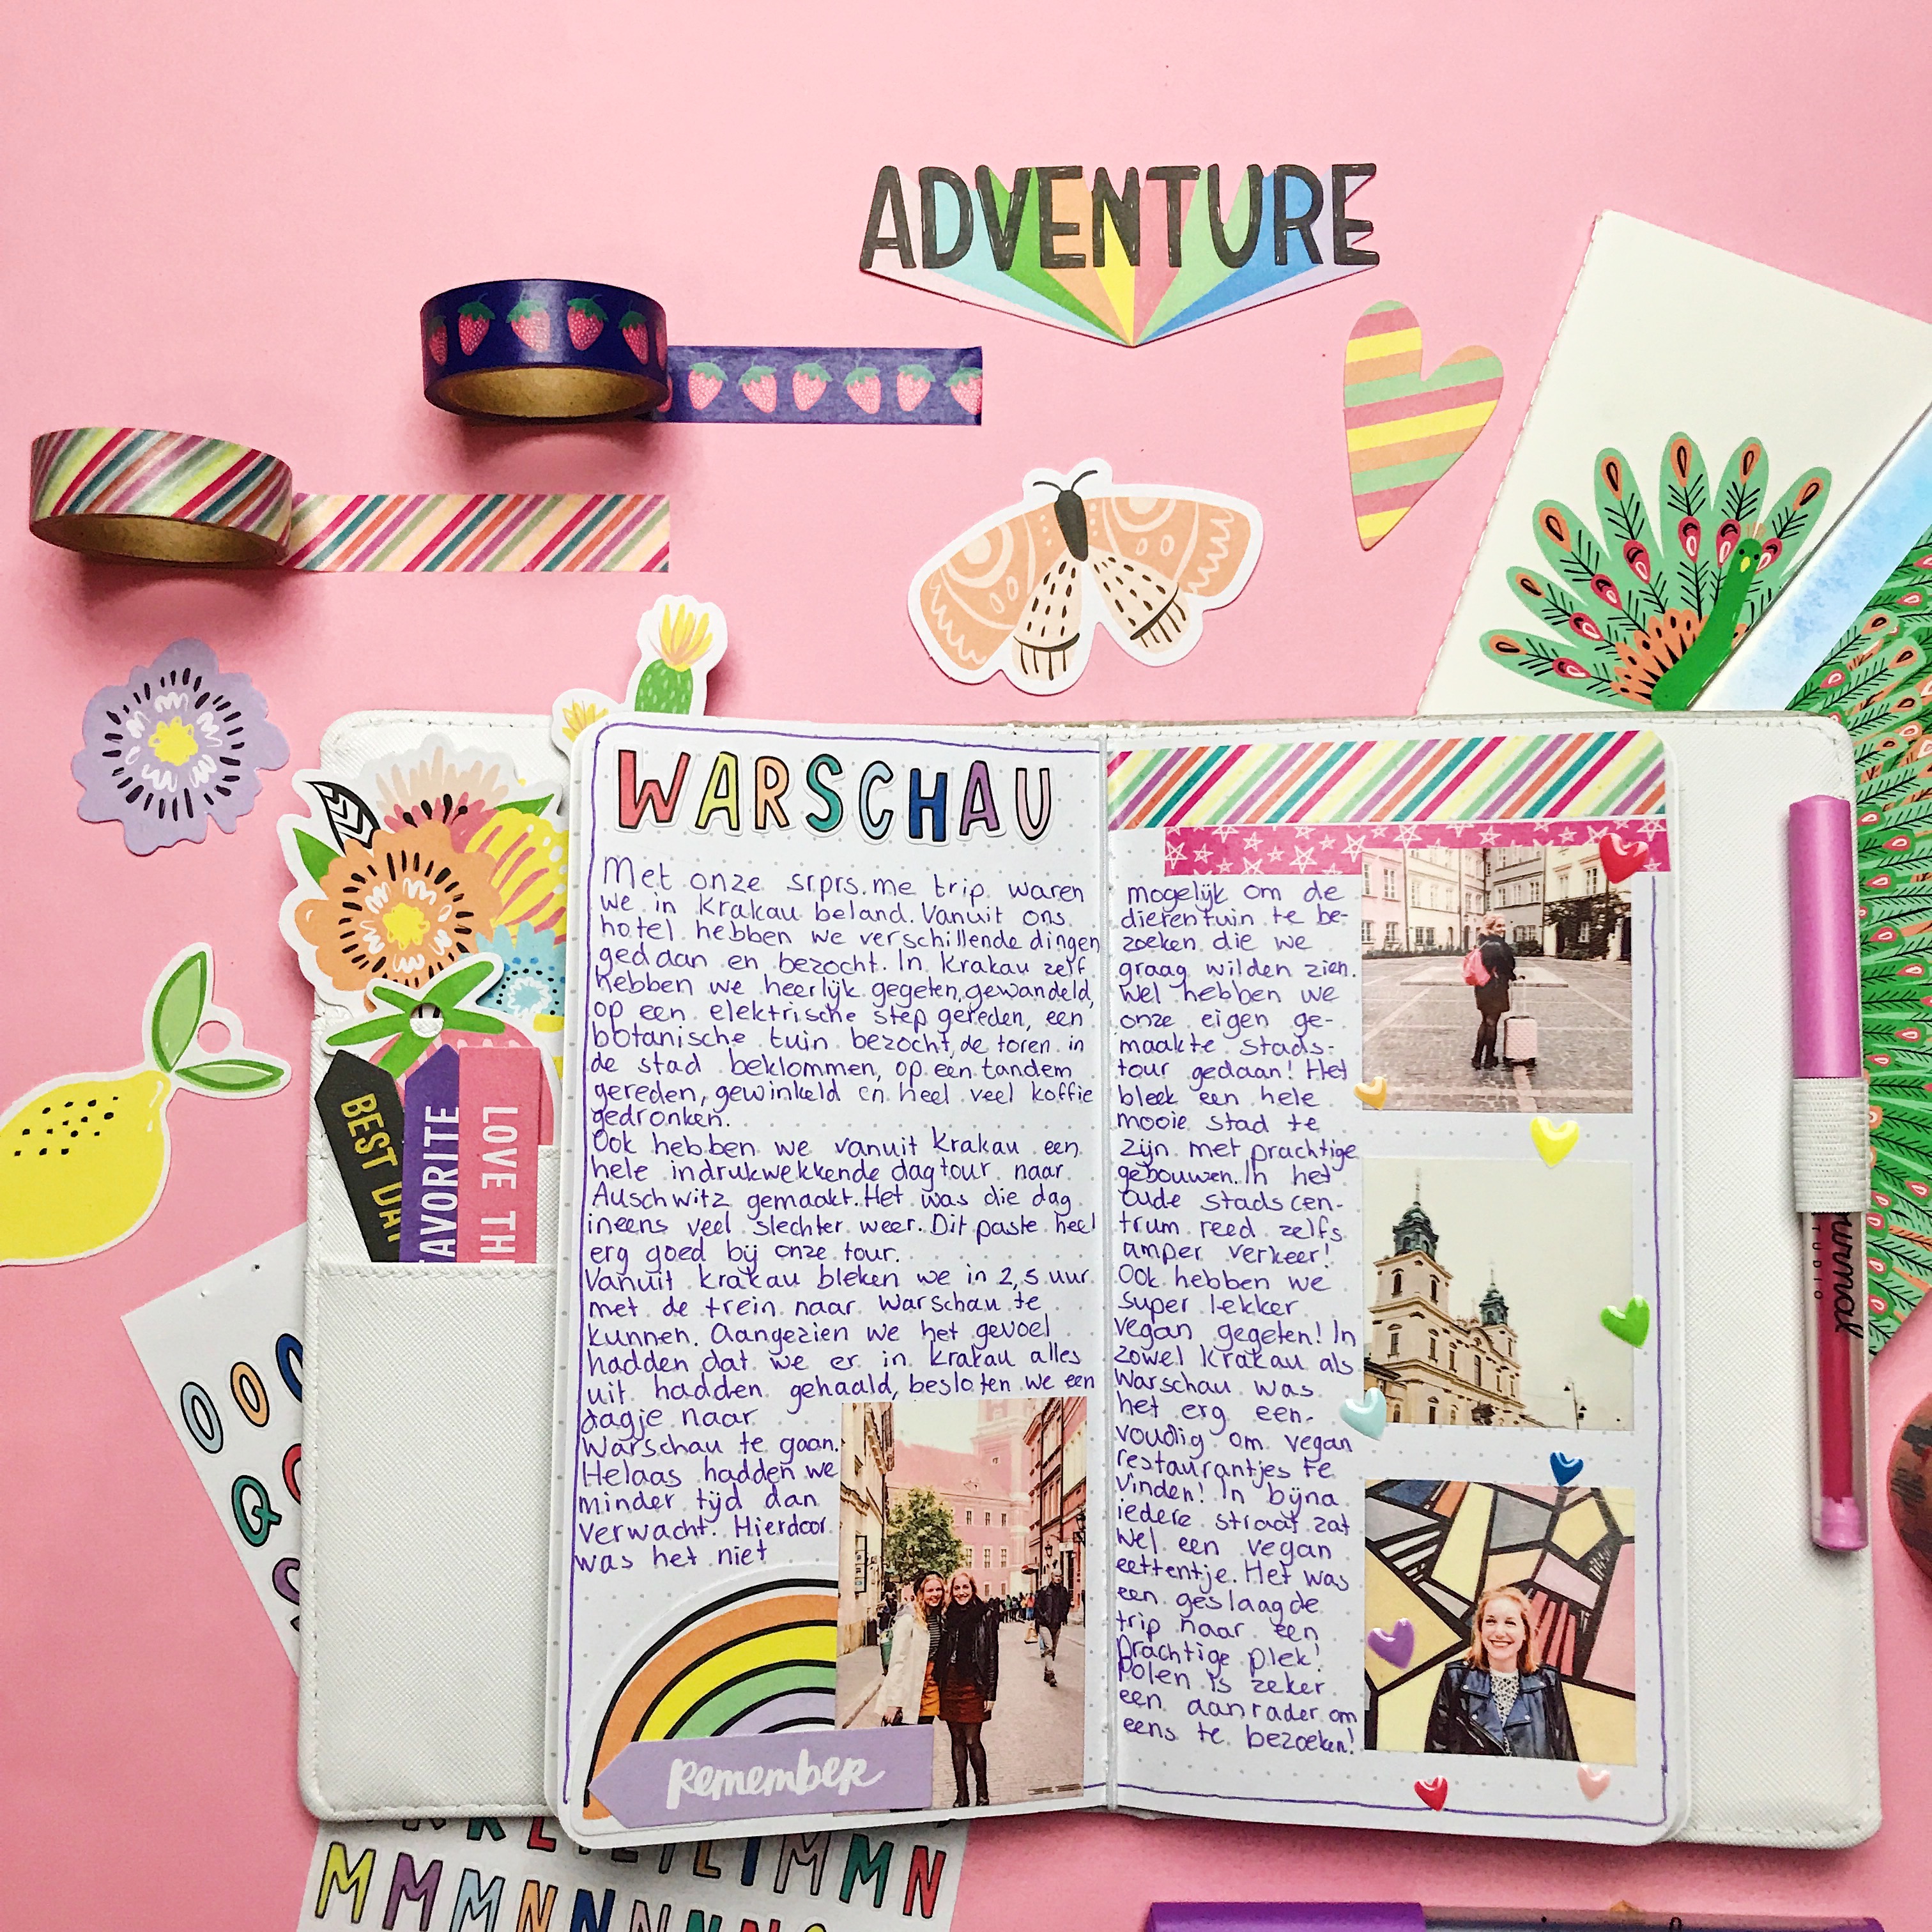 ADVENTURE
WARSCHAU
Met onze srprs.me trip waren
we in Krakau beland. Vanuit ons
hotel hebben we verschillende dingen
gedaan en bezocht. In Krakau zelf
hebben we heerlijk gegeten, gewandeld,
op een elektrische step gereden, een
botanische tuin bezocht, de toren in
de stad beklommen, op een tandem
gereden, gewinkeld en heel veel koffie
gedronken.
Ook hebben we vanuit Krakau een
hele indrukwekkende dagtour naar
Auschwitz gemaakt. Het was die dag
ineens veel slechter weer. Dit paste heel
erg goed bij onze tour.
Vanuit Krakau bleken we in 2,5 uur
met de trein naar Warschau te
kunnen. Aangezien we het gevoel
hadden dat we er in Krakau alles
uit hadden gehaald, besloten we een
dagje naar
Warschau te gaan.
Helaas hadden we
minder tijd dan
verwacht. Hierdoor
was het niet
Remember
mogelijk om de
dierentuin te be-
zoeken die we
graag wilden zien.
Wel hebben we
onze eigen ge-
maakte stads-
tour gedaan! Het
bleek een hele
mooie stad te
zijn met prachtige
gebouwen. In het
oude stadscen-
trum reed zelfs
amper verkeer!
Ook hebben we
super lekker
vegan gegeten! In
zowel Krakau als
Warschau was
het erg een-
voudig om vegan
restaurantjes te
vinden! In bijna
iedere straat zat
wel een vegan
eettentje. Het was
een geslaagde
trip naar een
prachtige plek!
Polen is zeker
een aanrader om
eens te bezoeken!
BEST DA
FAVORITE
LOVE TH
ournal
TUDIO
O O O
Q
M M M N N N N
L I M M N